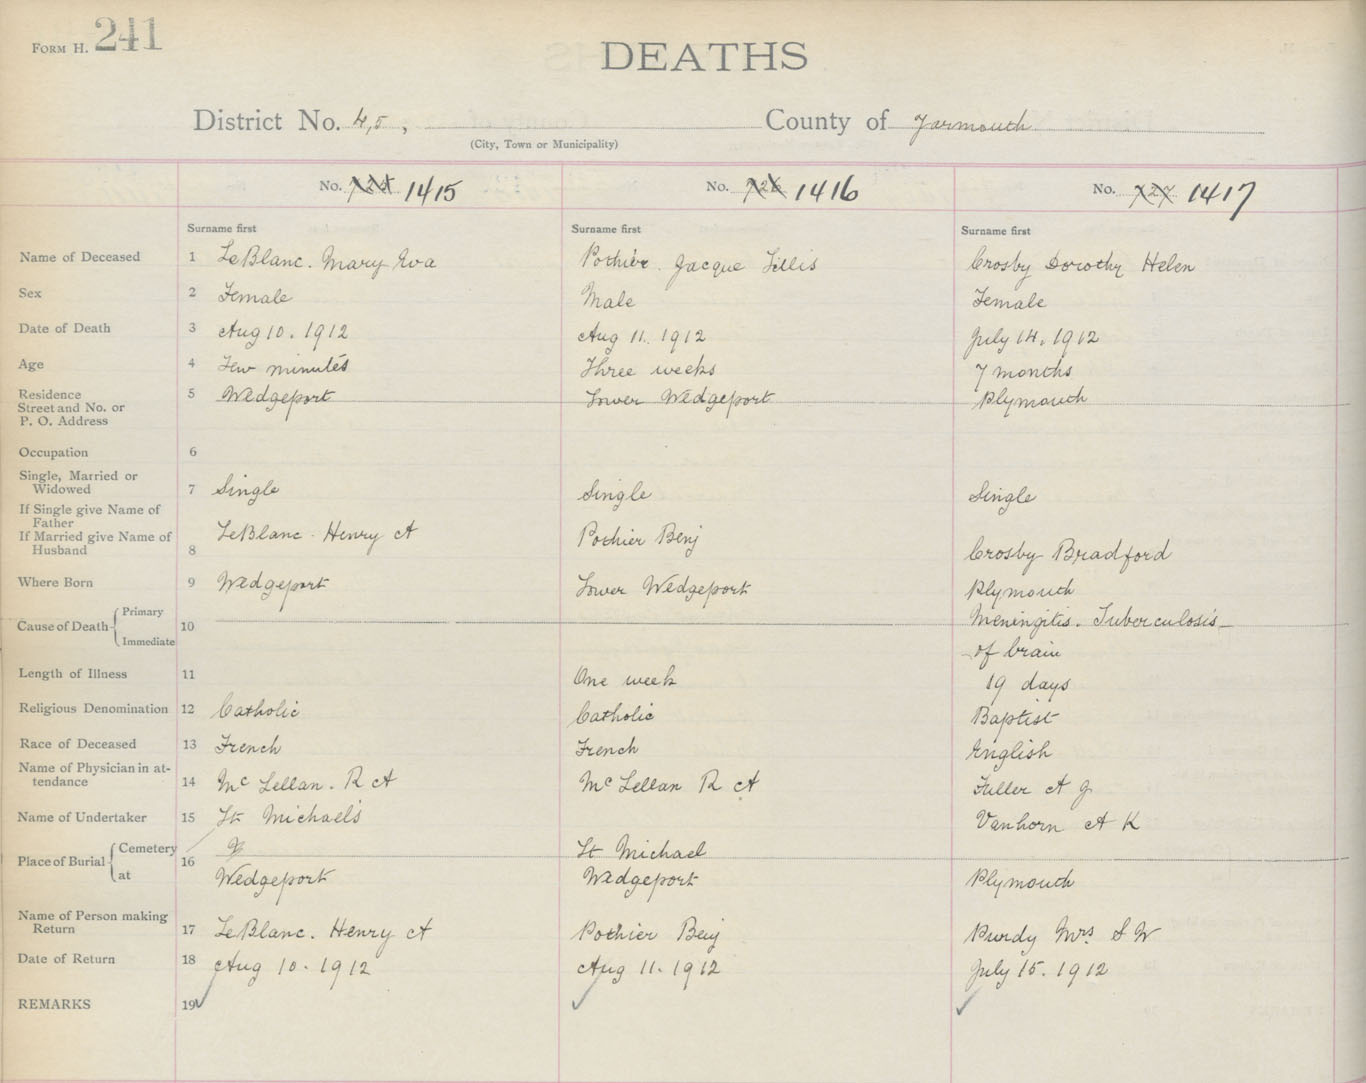 FORM H. 241
DEATHS
District No. 45, County of Yarmouth
(City, Town or Municipality)
No. 725 1415 No. 726 1416 No. 727 1417
Surname first Surname first Surname first
Name of Deceased 1 LeBlanc. Mary Eva Pothier. Jacque Lillis Crosby Dorothy Helen
Sex 2 Female Male Female
Date of Death 3 Aug 10. 1912 Aug 11. 1912 July 14. 1912
Age 4 Few minutes Three weeks 7 months
Residence 5 Wedgeport Lower Wedgeport Plymouth
Street and No. or
P. O. Address
Occupation 6
Single, Married or
Widowed 7 Single Single Single
If Single give Name of
Father
If Married give Name of LeBlanc. Henry A Pothier Benj
Husband 8 Crosby Bradford
Where Born 9 Wedgeport Lower Wedgeport Plymouth
Primary
Cause of Death 10 Meningitis. Tuberculosis
Immediate of brain
Length of Illness 11 One week 19 days
Religious Denomination 12 Catholic Catholic Baptist
Race of Deceased 13 French French English
Name of Physician in at-
tendance 14 Mc Lellan. R A Mc Lellan R A Fuller A J
Name of Undertaker 15 St Michaels Vanhorn A K
Cemetery St Michael
Place of Burial 16
at Wedgeport Wedgeport Plymouth
Name of Person making
Return 17 LeBlanc. Henry A Pothier Benj Purdy Mrs. S W
Date of Return 18 Aug 10. 1912 Aug 11. 1912 July 15. 1912
REMARKS 19